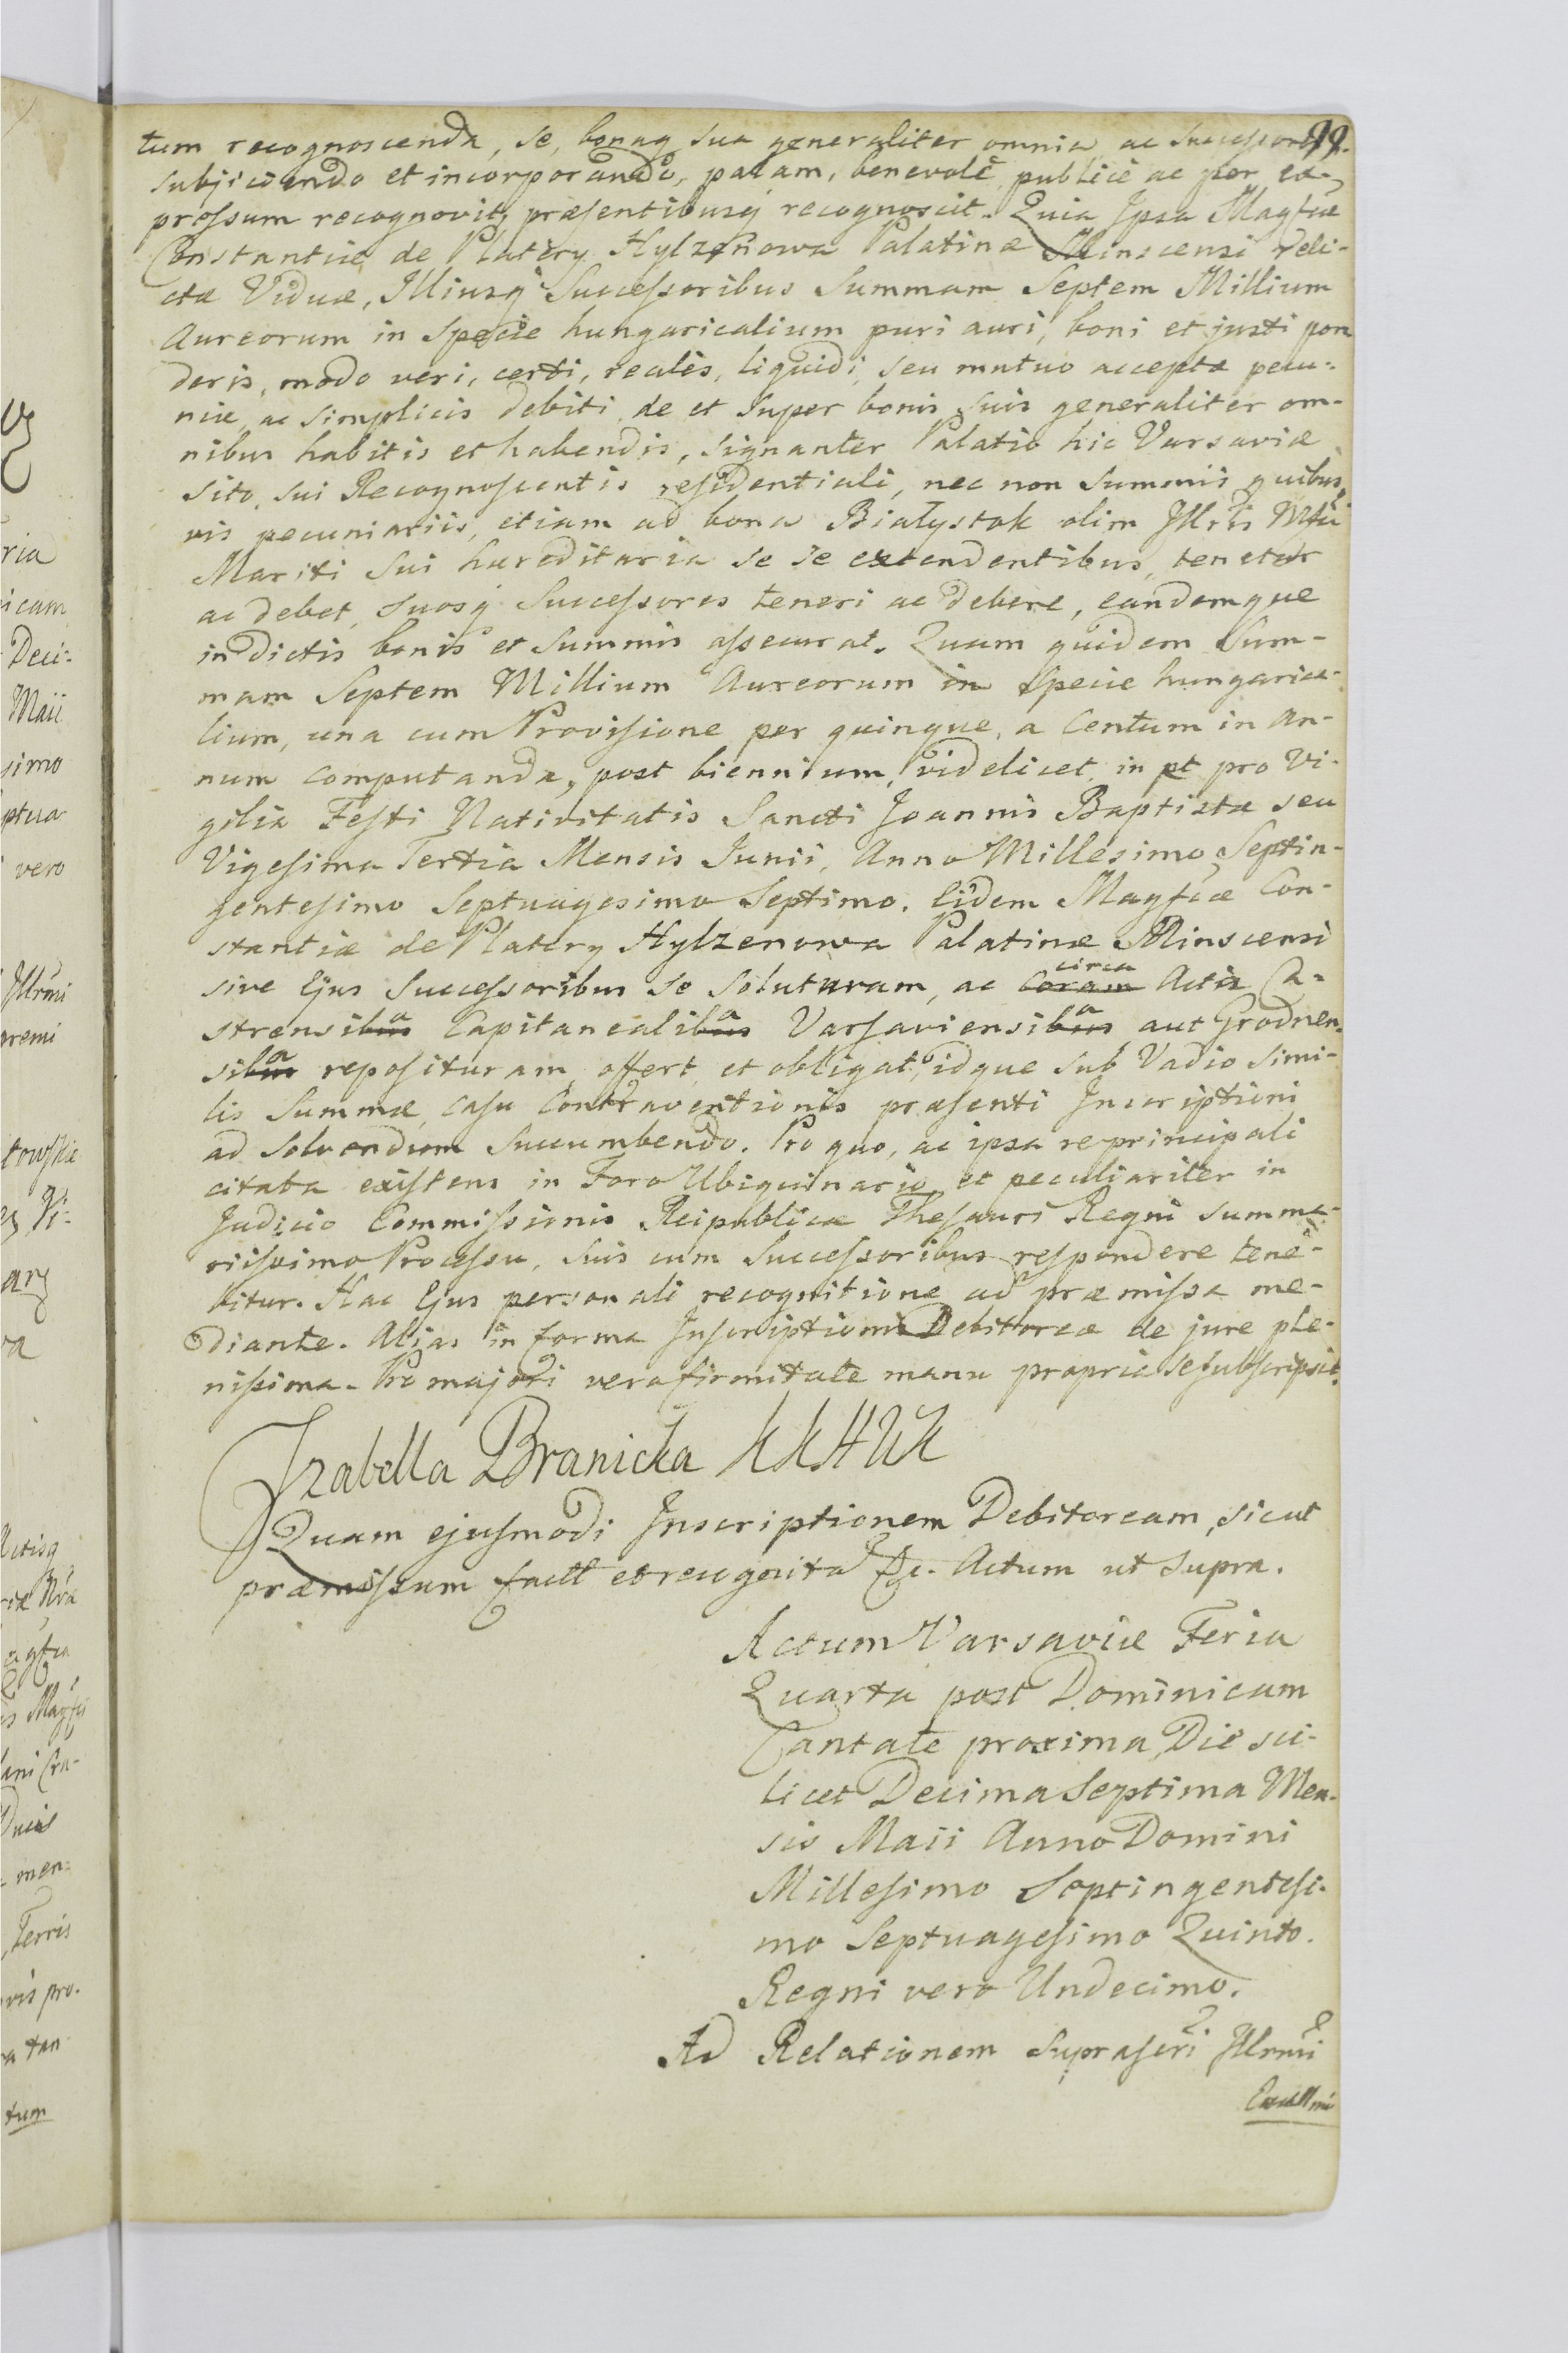 99.
tum recognoscenda, se, bonaq sua generaliter omnia ac Successores
subjiciendo et incorporando, palam, benevolè publicè ac per ex-
pressum recognovit, præsentibusq recognoscit. Quia Ipsa Magfcæ
Constantiæ de Platery Hylzenowa Palatinæ Minscensi reli-
ctæ Viduæ, Illiusq Successoribus Summam Septem Millium
Aureorum in Specie hungaricalium puri auri, boni et justi pon
deris, modo veri, certi, realis, liquidi, seu mutuo acceptæ pecu-
niæ, ac simplicis debiti de et super bonis suis generaliter om-
nibus habitis et habendis, signanter Palatio hic Varsaviæ
sito, sui Recognoscentis residentiali, nec non Summis quibus
vis pecuniariis, etiam ad bona Białystok olim Illris Mfci
Mariti sui hæreditaria se se extendentibus, tenetur
ac debet, suosq Successores teneri ac debere, eandemque
in dictis bonis et Summis assecurat. Quam quidem Sum-
mam Septem Millium Aureorum in Specie hungarica-
lium, una cum Provisione per quinque, a Centum in an-
num computanda, post biennium, videlicet, in et pro Vi-
gilia Festi Nativitatis Sancti Joannis Baptistæ seu
Vigesima Tertia Mensis Junii, Anno Millesimo Septin-
gentesimo Septuagesimo Septimo. Eidem Magfcæ Con-
stantiæ de Platery Hylzenowa Palatinæ Minscensi
circa
sive Ejus Successoribus se soluturam, ac coram Acta Ca-
strensibus a Capitanealibus a Varsaviensibus a aut Grodnen
sibus a reposituram, offert, et obligat, idque sub Vadio simi-
lis Summæ, casu Contraventionis præsenti Inscriptioni
ad solvendum succumbendo. Pro quo, ac ipsa re principali
citata existens in Foro Ubiquinario, et peculiariter in
Judicio Commissionis Reipublicæ Thesauri Regni summa-
riissimo Processu, suis cum Successoribus respondere tene-
bitur. Hac Ejus personali recognitione ad præmissa me-
diante. Alias in forma Inscriptionis Debitoreæ de jure ple-
nissima. Pro majori vero firmitate manu propria se subscripsit.
Izabella Branicka KKHWK
Quam ejusmodi Inscriptionem Debitoream, sicut
præmissum factt et recognita &c. Actum ut supra.
Actum Varsaviæ Feria
Quarta post Dominicam
Cantate proxima, Die sci-
licet Decima Septima Men-
sis Maii Anno Domini
Millesimo Septingentesi-
mo Septuagesimo Quinto.
Regni vero Undecimo.
Ad Relationem Suprascri Illrmi
Excellmi
ria
icam
Deci-
Maii
simo
ptua
vero
Illrmi
premi
towskie
Vi-
arz
va
Actisq
Nra
agfca
is Magfci
ani Cra-
Ducis
men-
Terris
vis pro-
a tan
tum